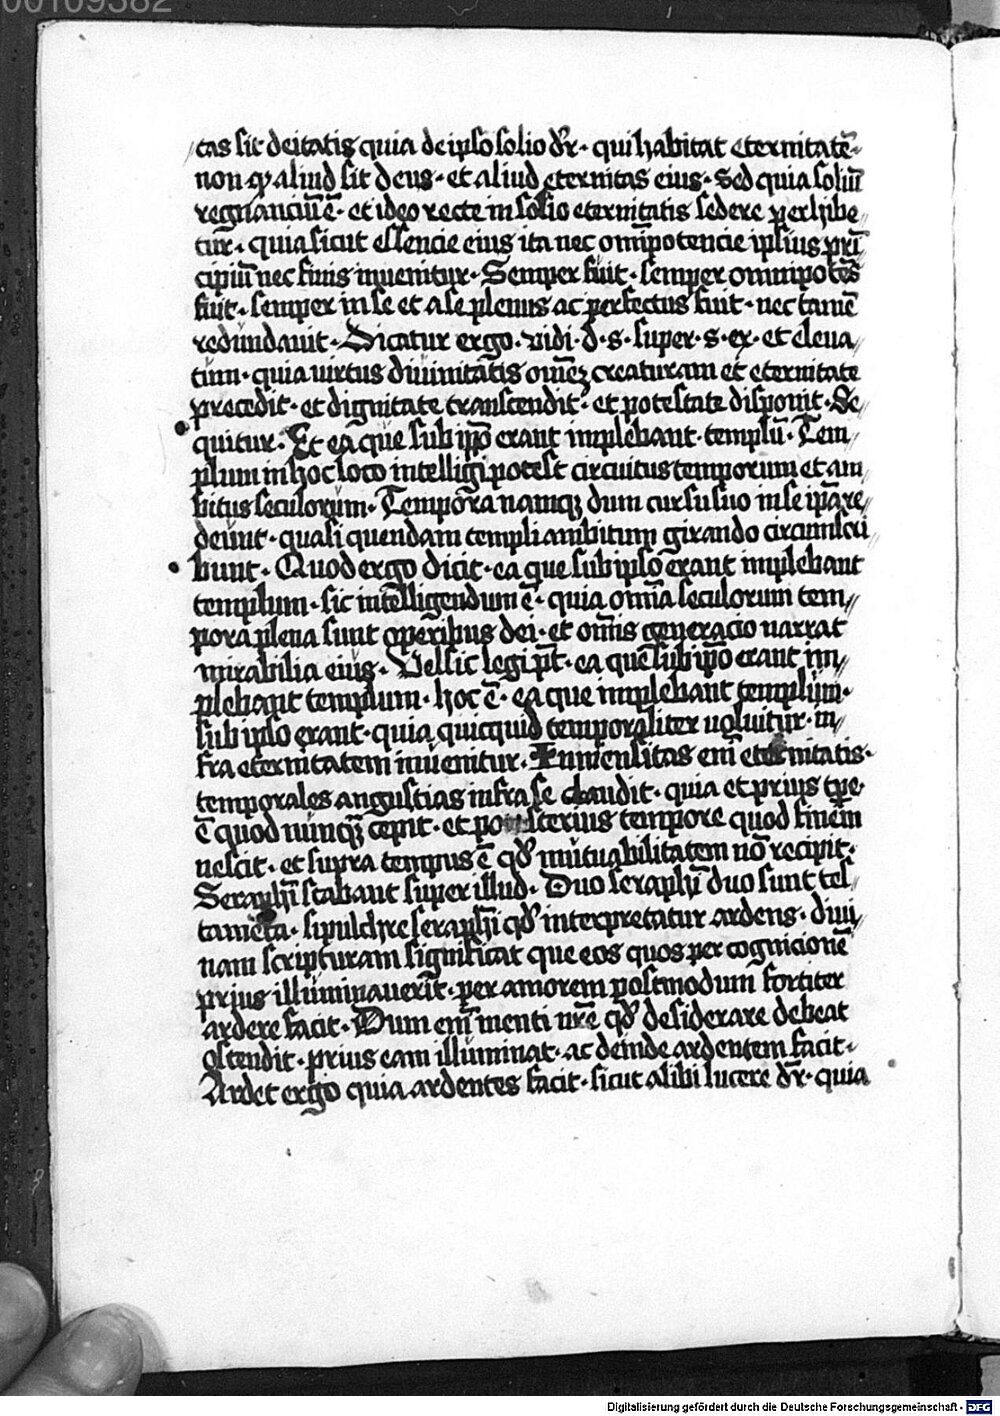 00109382
tas sit deitatis quia de ipso solio dr̃· qui habitat eternitatē·
non qͥ aliud sit deus· et aliud eternitas eius· Sed quia soliū
regnanciū ē· et ideo recte in solio eternitatis sedere perhibe//
tur̃· quia sicut essencie eius ita nec om̄ipotencie ipsius pri̅
cipiū nec finis inuenitur· Semper fuit· semper omnipotēs
fuit· semper in se et a se plenus ac perfectus fuit· nec tamē
redundauit· Dicatur ergo· vidi· d· s· super· s· ex· et eleua//
tum· quia uirtus diuinitatis om̄eꝫ creaturam et eternitate
precedit· et dignitate transcendit· et potestate disponit· Se//
quitur· Et ea que sub ip̄o erant implebant· templū· Tem
plum in hoc loco intelligi potest circuitus temporum et am
bitus seculorum· Tempora namqꝫ dum cursu suo in se ip̄a re//
deunt· quasi quendam templi ambitum girando circumscri//
bunt· Quod ergo dicit· ea que sub ipso erant implebant
templum· sic intelligendum ē· quia om̄ia seculorum tem//
pora plena sunt operibus dei· et om̄is generacio narrat
mirabilia eius· Vel sic legi pt̄· ea que sub ip̄o erant im//
plebant templum· hoc ē· ea que implebant templum·
sub ipso erant· quia quicquid temporaliter uoluitur· in//
fra eternitatem inuenitur· Inmensitas em̄ eternitatis·
temporales angustias infra se claudit· quia et prius tp̄e·
ē quod nunqꝫ cepit· et posterius tempore quod finem
nescit· et supra tempus ē qd̕ mutuabilitatem nō recipit·
Seraphī stabant super illud· Duo seraphȳ duo sunt tes//
tamēta· si pulchre seraphī qd̕ interpretatur ardens· diui//
nam scripturam significat que eos quos per cognicionē
prius illuminauerit· per amorem postmodum fortiter
ardere facit· Dum em̄ menti nr̄e qd̕ desiderare debeat
ostendit· prius eam illuminat· ac deinde ardentem facit·
Ardet ergo quia ardentes facit· sicut alibi lucere dr̃· quia
Digitalisierung gefördert durch die Deutsche Forschungsgemeinschaft - DFG